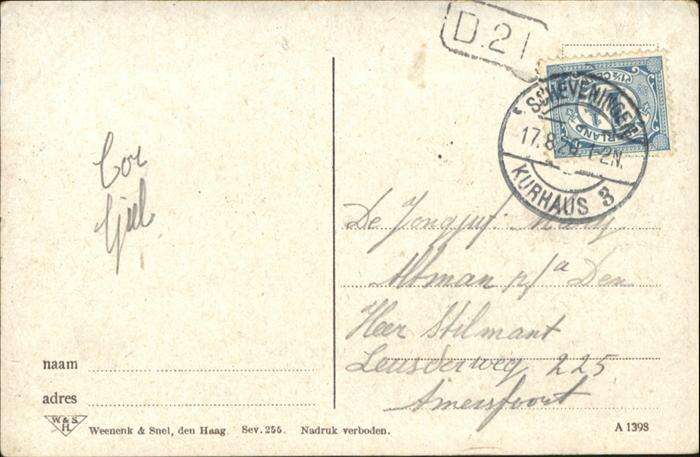 D.21
1½ CT
NEDERLAND
SCHEVENINGEN
17.8.20.1-2N.
KURHAUS 3
Cor
De Jongjuf: Marij
Altman p/a Den
Heer Stilmant
Leusderweg 225
Amersfoort
naam
adres
W.& S.
H.
Weenenk & Snel, den Haag. Sev. 255. Nadruk verboden.
A 1398